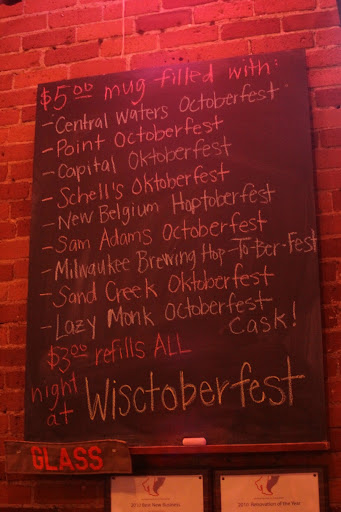 $5.00 mug filled with:
- Central Waters Octoberfest
- Point Octoberfest
- Capital Oktoberfest
- Schell's Oktoberfest
- New Belgium Hoptoberfest
- Sam Adams Octoberfest
- Milwaukee Brewing Hop-To-Ber-Fest
- Sand Creek Oktoberfest
- Lazy Monk Octoberfest
Cask!
$3.00 refills ALL
night at Wisctoberfest
GLASS
2010 Best New Business
2010 Renovation of the Year